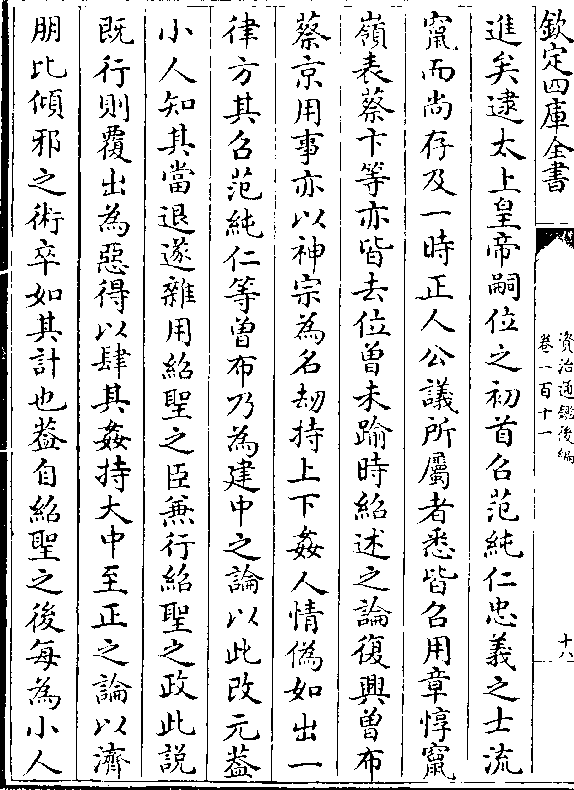 欽定四庫全書
資治通鑑後編
卷一百十一
十八
進矣逮太上皇帝嗣位之初首召范純仁忠義之士流
竄而尚存及一時正人公議所屬者悉皆召用章惇竄
嶺表蔡卞等亦皆去位曾未踰時紹述之論復興曾布
蔡京用事亦以神宗為名劫持上下姦人情偽如出一
律方其召范純仁等曾布乃為建中之論以此改元葢
小人知其當退遂雜用紹聖之臣兼行紹聖之政此說
既行則覆出為惡得以肆其姦持大中至正之論以濟
朋比傾邪之術卒如其計也葢自紹聖之後每為小人